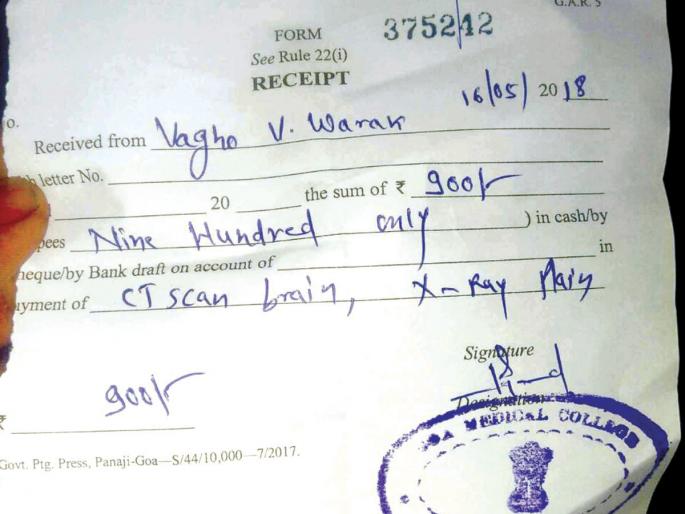 G.A.R. 5
FORM 375242
See Rule 22(i)
RECEIPT
16/05/ 2018
o.
Received from Vagho V. Warak
letter No.
20 the sum of ₹ 900/-
pees Nine Hundred only ) in cash/by
heque/by Bank draft on account of in
ayment of CT scan brain, X-Ray Plain
Signature
₹ 900/-
Designation
GOA MEDICAL COLLEGE
Govt. Ptg. Press, Panaji-Goa—S/44/10,000—7/2017.